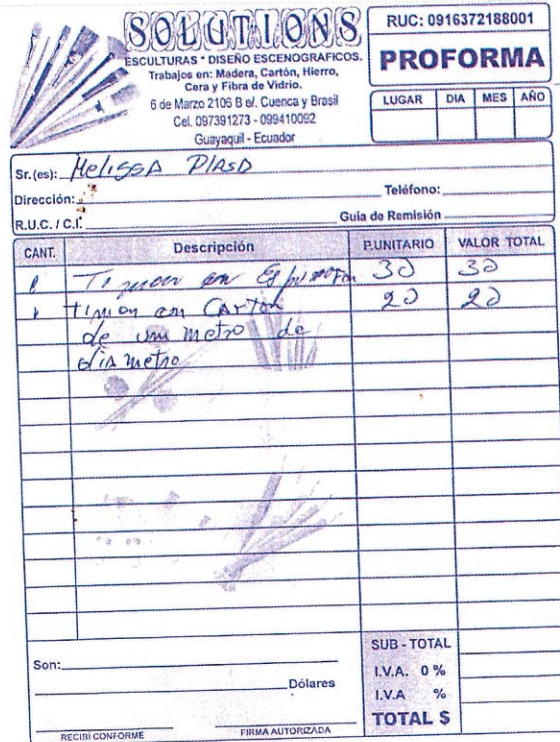 SOLUTIONS
ESCULTURAS * DISEÑO ESCENOGRAFICOS.
Trabajos en: Madera, Cartón, Hierro,
Cera y Fibra de Vidrio.
6 de Marzo 2106 B e/. Cuenca y Brasil
Cel. 097391273 - 099410092
Guayaquil - Ecuador
RUC: 0916372188001
PROFORMA
LUGAR DIA MES AÑO
Sr.(es): Melissa
Dirección: Teléfono:
R.U.C. / C.I. Guia de Remisión
CANT. Descripción P.UNITARIO VALOR TOTAL
1 Timon en 30 30
1 timon en Carton 20 20
de un metro de
diametro
Son:
Dólares
SUB - TOTAL
I.V.A. 0 %
I.V.A %
TOTAL $
RECIBI CONFORME FIRMA AUTORIZADA